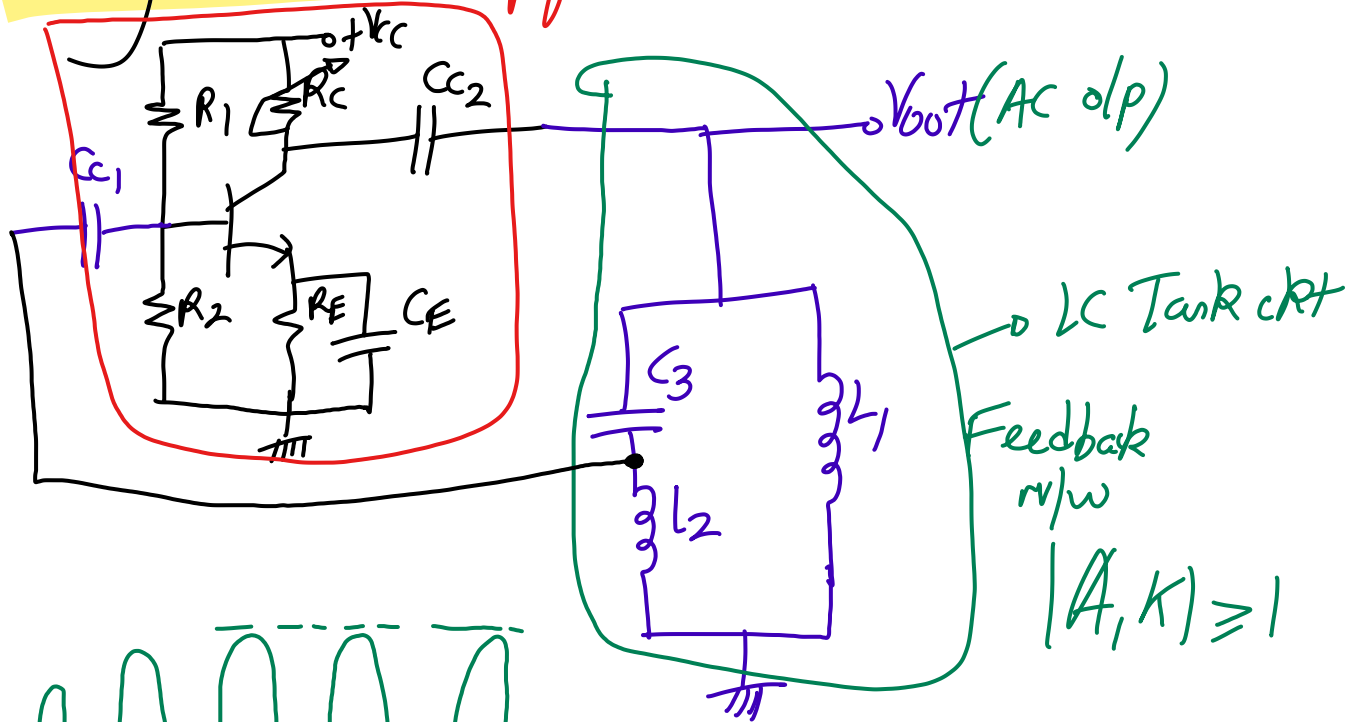 +Vcc
R1
Rc
Cc2
Vout (AC o/p)
Cc1
R2
RE
CE
LC Tank ckt
C3
L1
Feedback
n/w
L2
|A, K| ≥ 1